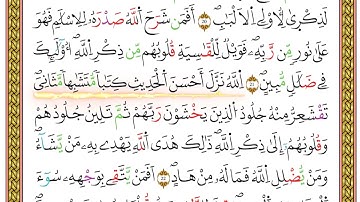 لَذِكْرَىٰ لِأُو۟لِى ٱلْأَلْبَٰبِ ٢٠ أَفَمَن شَرَحَ ٱللَّهُ صَدْرَهُۥ لِلْإِسْلَٰمِ فَهُوَ
عَلَىٰ نُورٍ مِّن رَّبِّهِۦ فَوَيْلٌ لِّلْقَٰسِيَةِ قُلُوبُهُم مِّن ذِكْرِ ٱللَّهِ أُو۟لَٰٓئِكَ
فِى ضَلَٰلٍ مُّبِينٍ ٢١ ٱللَّهُ نَزَّلَ أَحْسَنَ ٱلْحَدِيثِ كِتَٰبًا مُّتَشَٰبِهًا مَّثَانِىَ
تَقْشَعِرُّ مِنْهُ جُلُودُ ٱلَّذِينَ يَخْشَوْنَ رَبَّهُمْ ثُمَّ تَلِينُ جُلُودُهُمْ
وَقُلُوبُهُمْ إِلَىٰ ذِكْرِ ٱللَّهِ ذَٰلِكَ هُدَى ٱللَّهِ يَهْدِى بِهِۦ مَن يَشَآءُ
وَمَن يُضْلِلِ ٱللَّهُ فَمَا لَهُۥ مِنْ هَادٍ ٢٢ أَفَمَن يَتَّقِى بِوَجْهِهِۦ سُوٓءَ